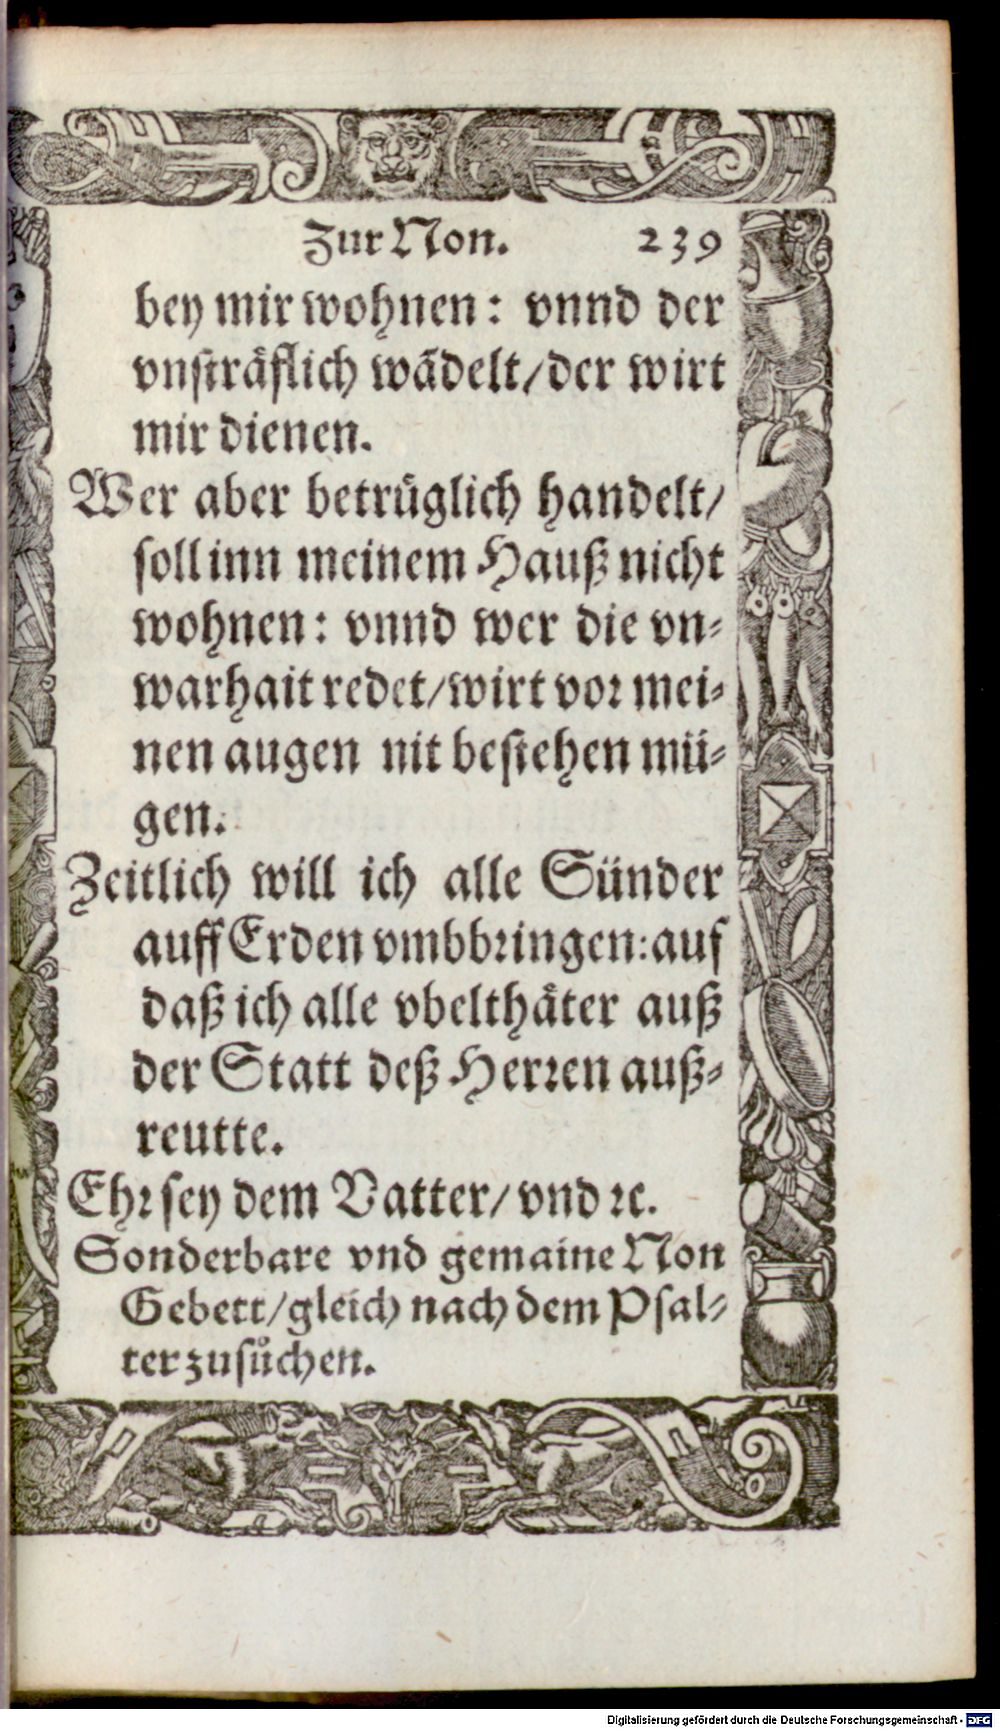 Zur Non. 239
bey mir wohnen: vnnd der
vnsträflich wãdelt/der wirt
mir dienen.
Wer aber betrüglich handelt/
soll inn meinem Hauß nicht
wohnen: vnnd wer die vn⸗
warhait redet/wirt vor mei⸗
nen augen nit bestehen mü⸗
gen.
Zeitlich will ich alle Sünder
auff Erden vmbbringen: auf
daß ich alle vbelthäter auß
der Statt deß Herren auß⸗
reutte.
Ehr sey dem Vatter/ vnd ꝛc.
Sonderbare vnd gemaine Non
Gebett/gleich nach dem Psal⸗
ter zusůchen.
Digitalisierung gefördert durch die Deutsche Forschungsgemeinschaft - DFG